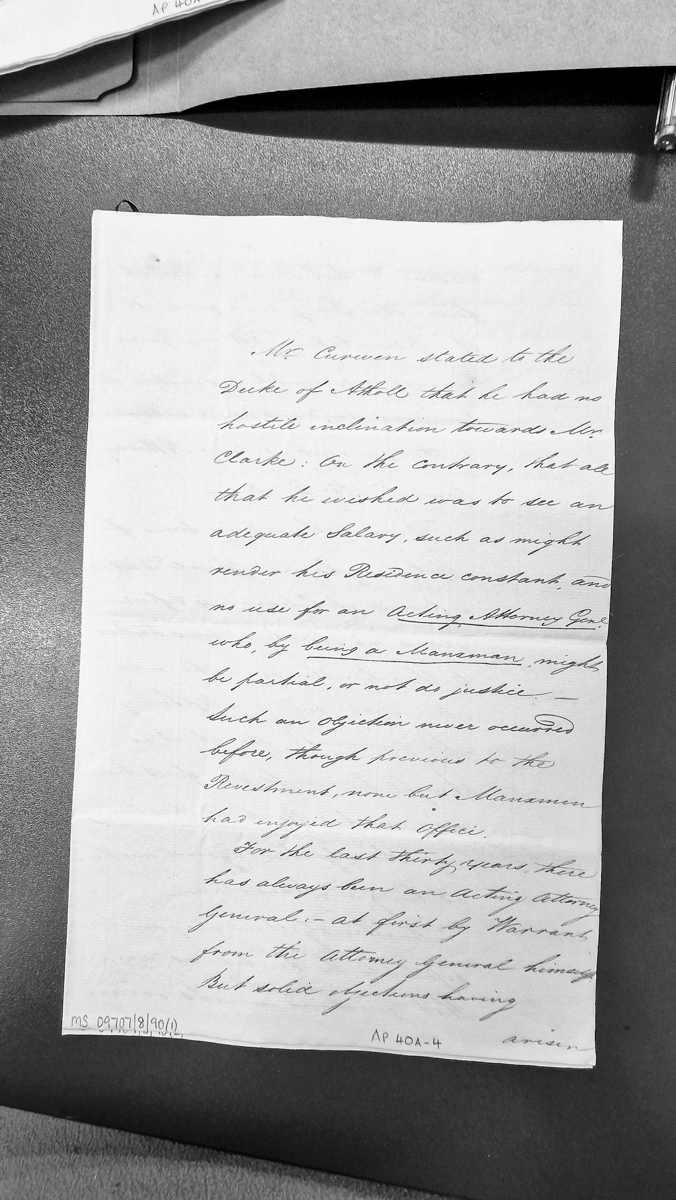 AP 40A
Mr. Curwen stated to the
Duke of Atholl that he had no
hostile inclination towards Mr.
Clarke: On the contrary, that all
that he wished was to see an
adequate Salary, such as might
render his Residence constant, and
no use for an Acting Attorney Genl.
who, by being a Manxman, might
be partial, or not do justice. —
Such an objection never occurred
before, though previous to the
Revestment, none but Manxmen
had enjoyed that office.
For the last thirty years, there
has always been an Acting Attorney
General: — at first by Warrant
from the Attorney General himself.
But solid objections having
arisen
MS 09707/8/90(1)
AP 40A-4